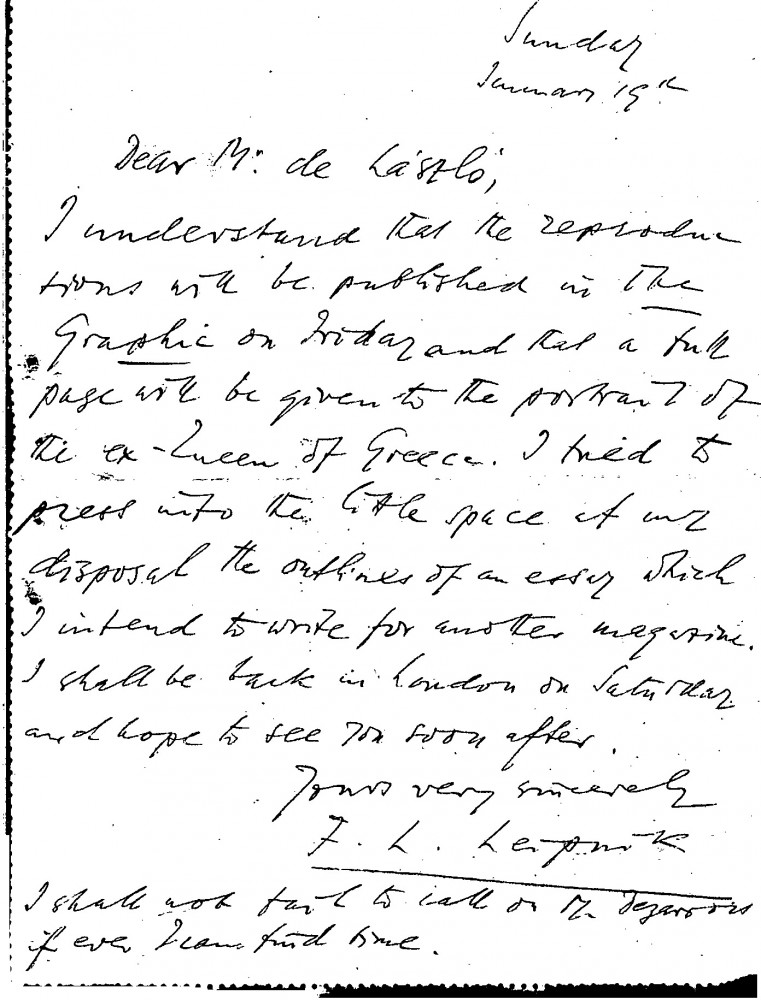 Sunday
January 19th
Dear Mr. de László,
I understand that the reproduc
tions will be published in The
Graphic on Friday and that a full
page will be given to the portrait of
the ex-Queen of Greece. I tried to
press into the little space at my
disposal the outlines of an essay which
I intend to write for another magazine.
I shall be back in London on Saturday
and hope to see you soon after.
Yours very sincerely
F. L. Leipnik
I shall not fail to call on M. Dezarrois
if ever I can find time.